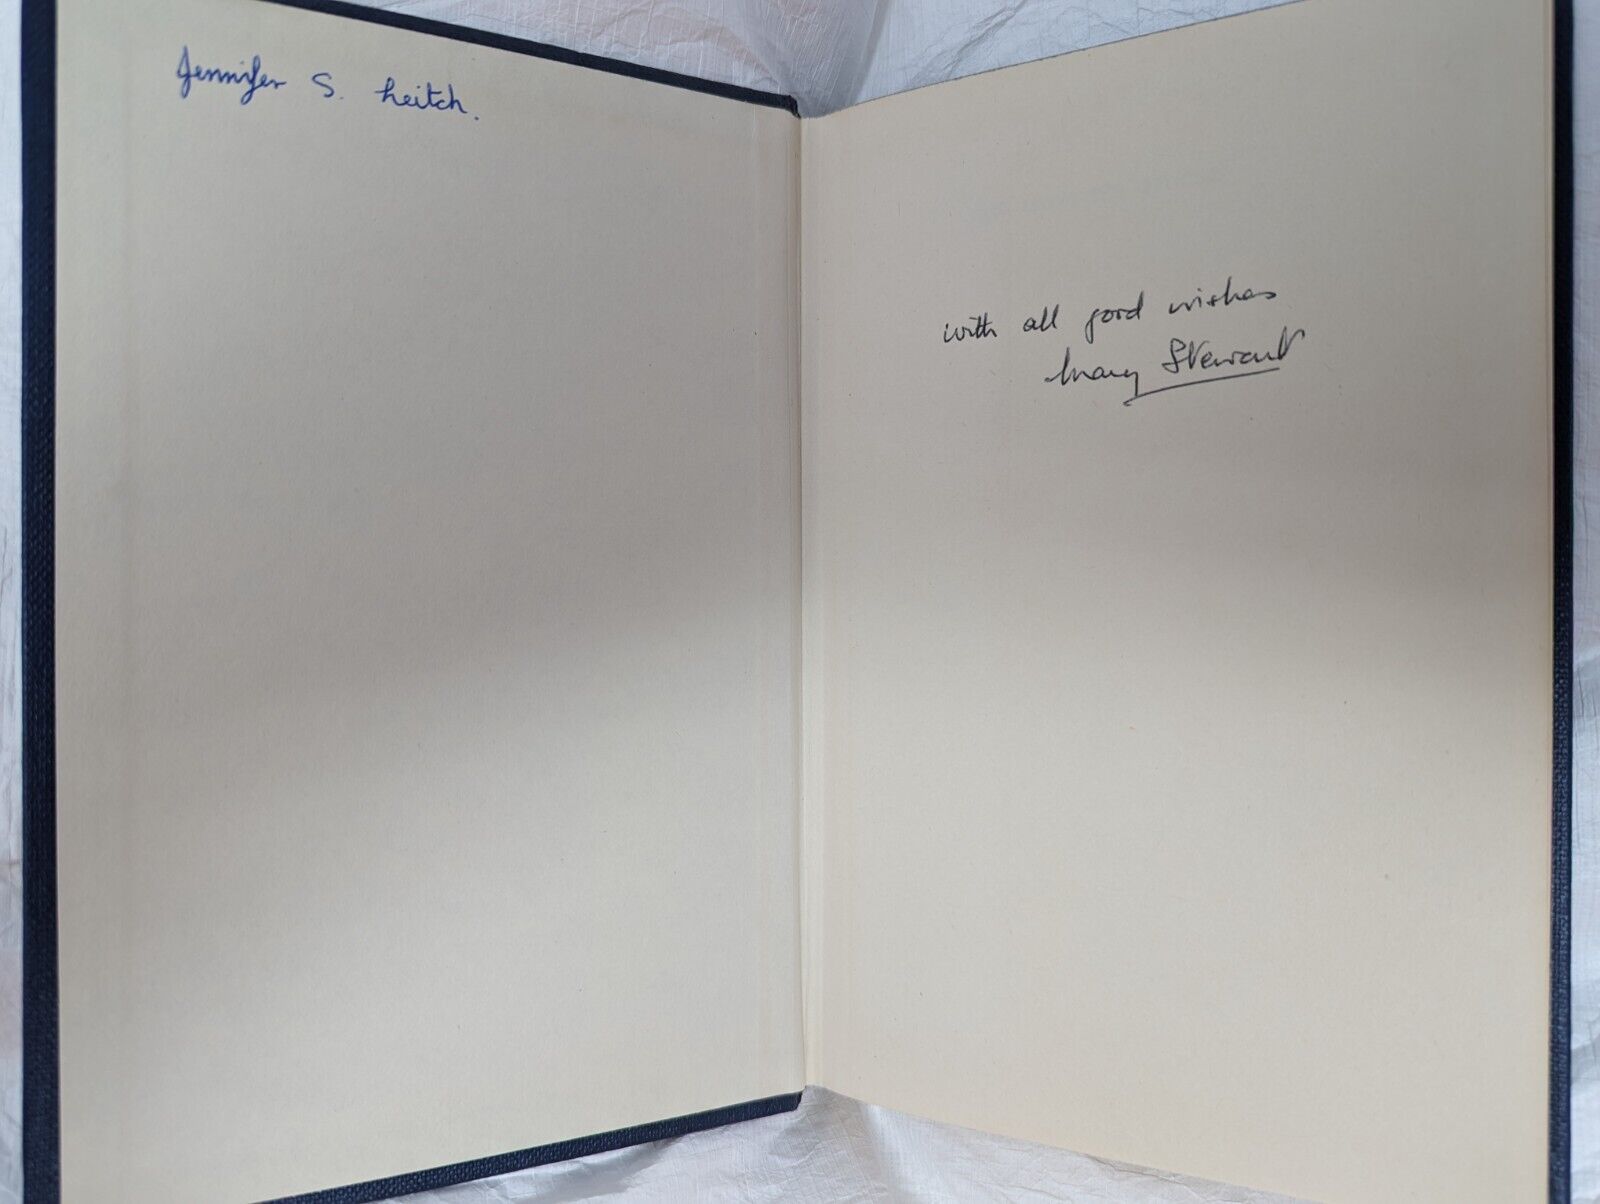 Jennifer S. Leitch.
with all good wishes
Mary Stewart